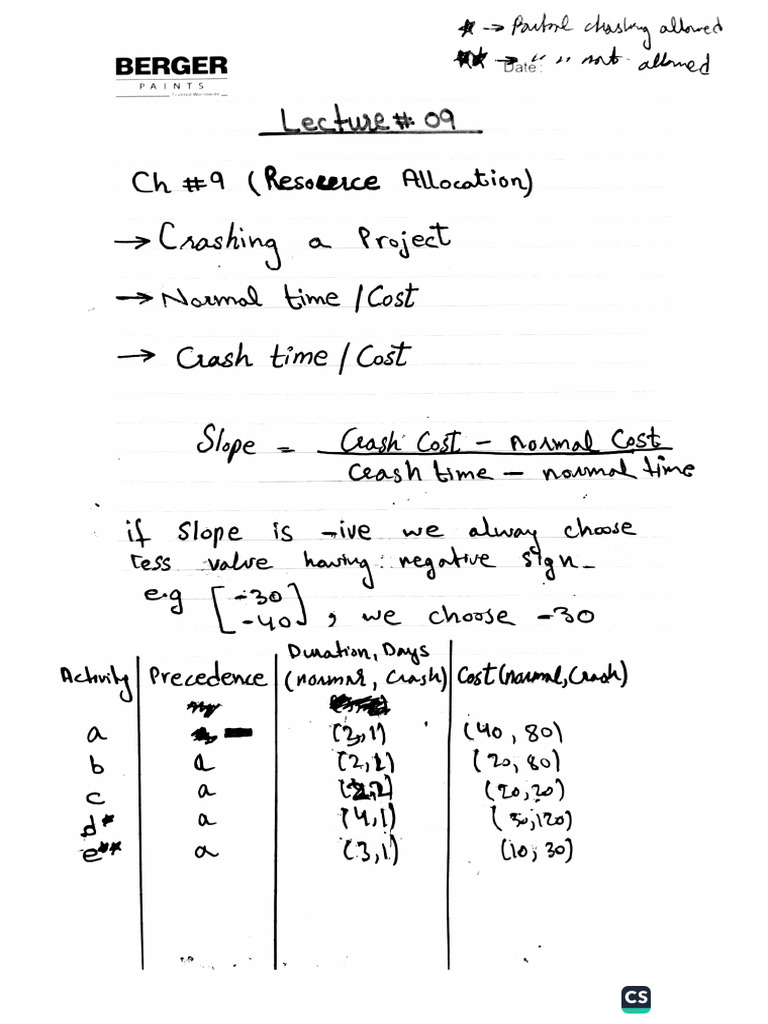 * → Partial chashing allowed
** → " " not allowed
Date:
BERGER
PAINTS
Trusted Worldwide
Lecture # 09
Ch #9 (Resource Allocation)
→ Crashing a Project
→ Normal time / Cost
→ Crash time / Cost
Slope = Crash Cost - normal Cost
Crash time - normal time
if slope is -ive we alway choose
less value having negative sign.
e.g [-30
-40], we choose -30
Activity Precedence Duration, Days (normal, crash) Cost (normal, Crash)
a - (2,1) (40, 80)
b a (2,1) (20, 80)
c a (2,2) (20,20)
d* a (4,1) (30,120)
e** a (3,1) (10, 30)
CS